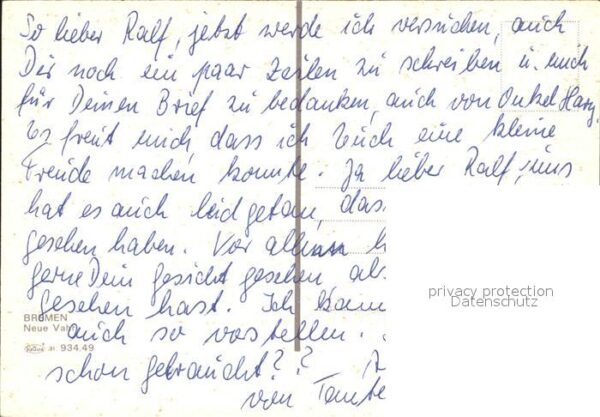 So lieber Ralf, jetzt werde ich versuchen, auch
Dir noch ein paar Zeilen zu schreiben u. mich
für Deinen Brief zu bedanken, auch von Onkel Harry.
Es freut mich, dass ich Euch eine kleine
Freude machen konnte. Ja lieber Ralf, uns
hat es auch leid getan, das
gesehen haben. Vor allem h
gerne Dein Gesicht gesehen, als
gesehen hast. Ich kann
auch so vorstellen.
schon gebraucht??
von Tante
privacy protection
Datenschutz
BREMEN
Neue Vahr
934.49